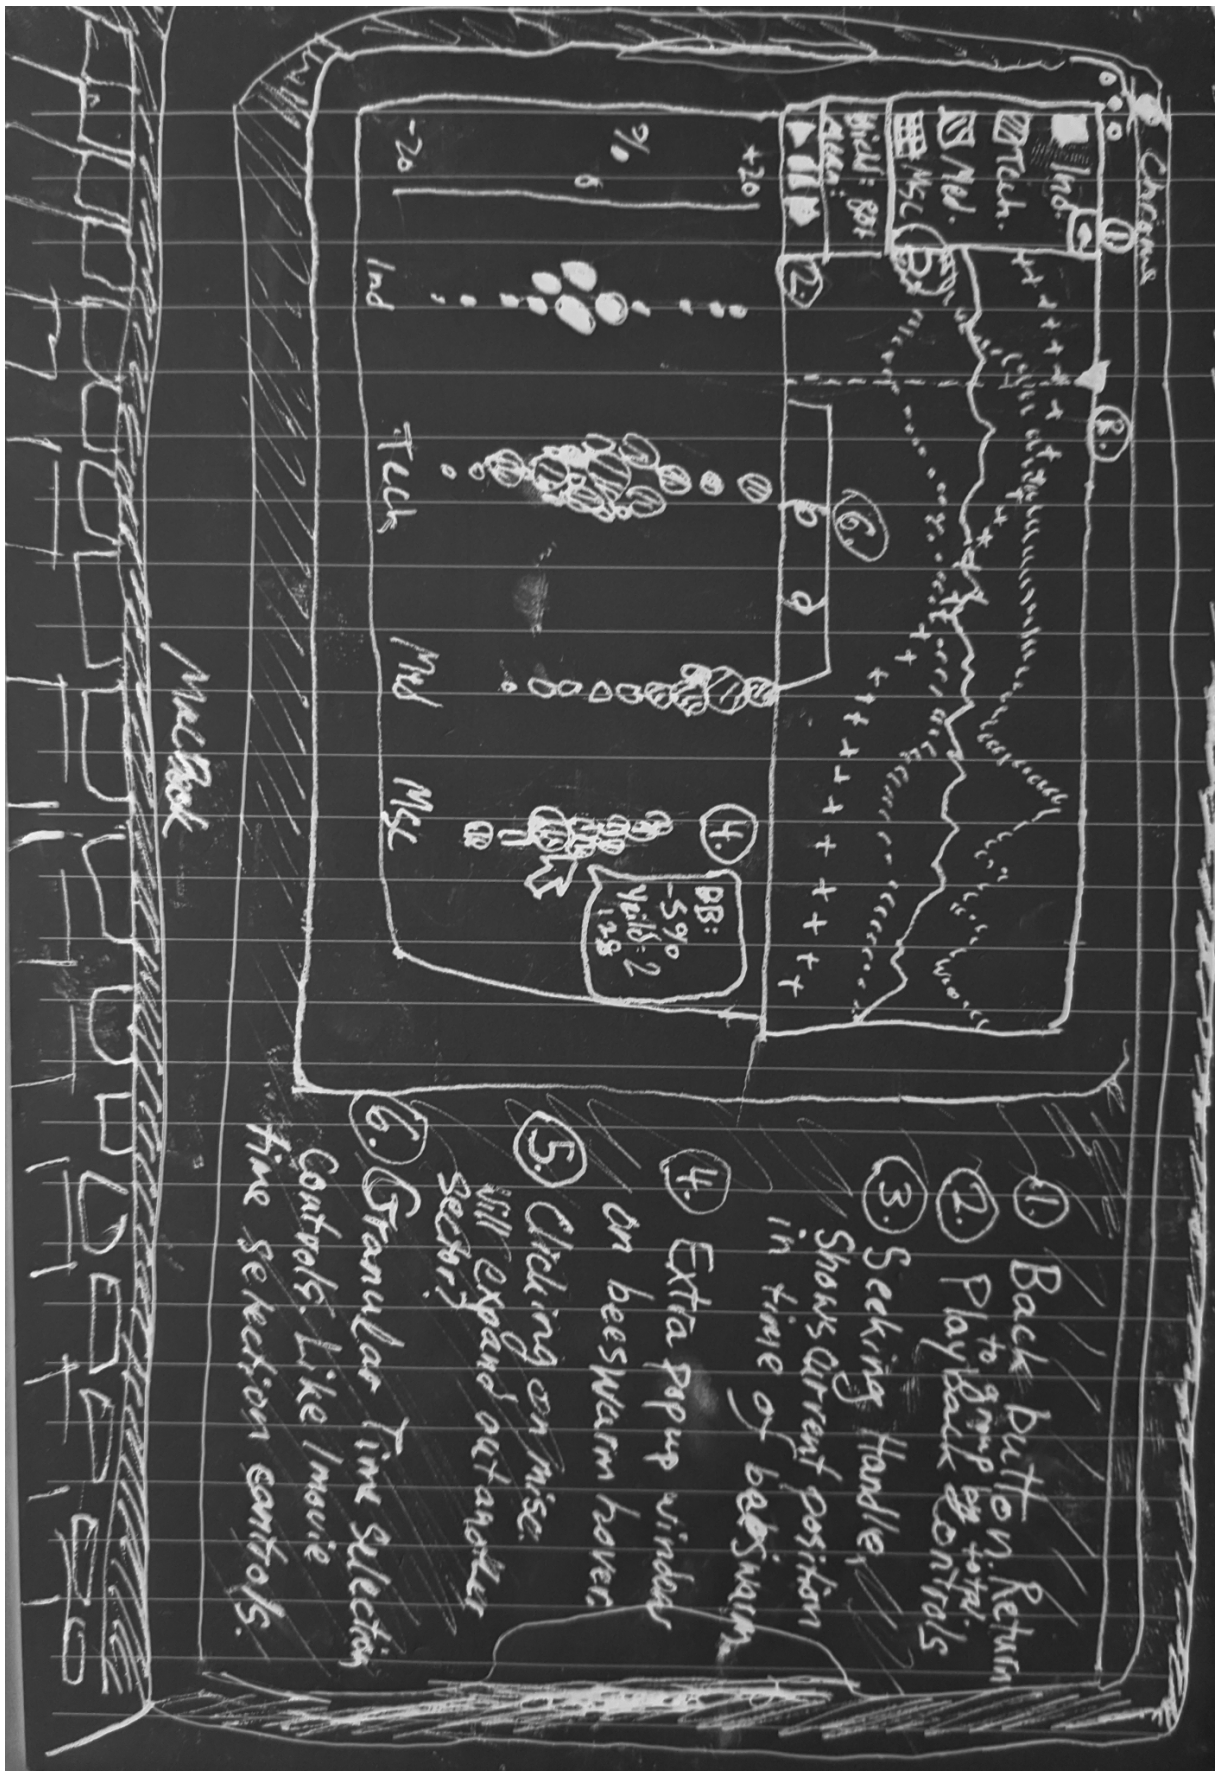 Chrome
①
Ind.
Tech.
Med.
MSC
5.
2.
+20
%
0
-20
Ind
Tech
Med
Msc
6.
4.
BB:
-5%
Yeild: 2
128
MacBook
①. Back button. Return
to group by total.
②. Playback Contols
③. Seeking Handle,
Shows current position
in time of beeswarm
④. Extra popup window
on beeswarm hover
⑤. Clicking on misc.
Will expand out another
Sector.
⑥. Granular Time Selection
Controls. Like Imovie
time selection controls.